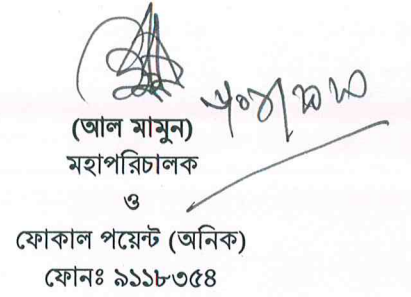 (আল মামুন)
মহাপরিচালক
ও
ফোকাল পয়েন্ট (অনিক)
ফোনঃ ৯১১৮৩৫৪